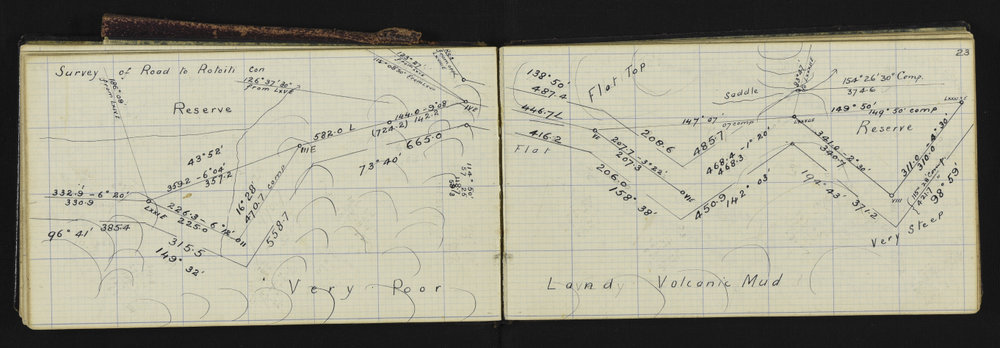 Survey of Road to Rotoiti con
Reserve
126° 37' 30"
from LXVE
106° 09'
from LXVIE
582.0 L
144.0 - 9° 08'
(724.2) 142.2
665.0
73° 40'
VE
IIIE
43° 52'
359.2 - 6° 04'
357.2
332.9 - 6° 20'
330.9
LXXIE
226.3 - 6° 12'
225.0
16° 28'
470.7
comp
558.7
96° 41'
385.4
315.5
149° 32'
Very Poor
23
138° 50'
487.4
446.7 L
416.2
Flat
Flat Top
Saddle
154° 26' 30" Comp.
374.6
147° 07'
07 comp
149° 50'
149° 50' comp
Reserve
208.6
485.7
207.7 - 3° 22'
207.3
468.4 - 1° 20'
468.3
341.0 - 2° 30'
340.7
311.0 - 4° 30'
310.0
206.0
158° 38'
450.9
142° 03'
194° 43'
371.2
115° 39' comp
421.7
98° 59'
VIII
Very Steep
Land Volcanic Mud